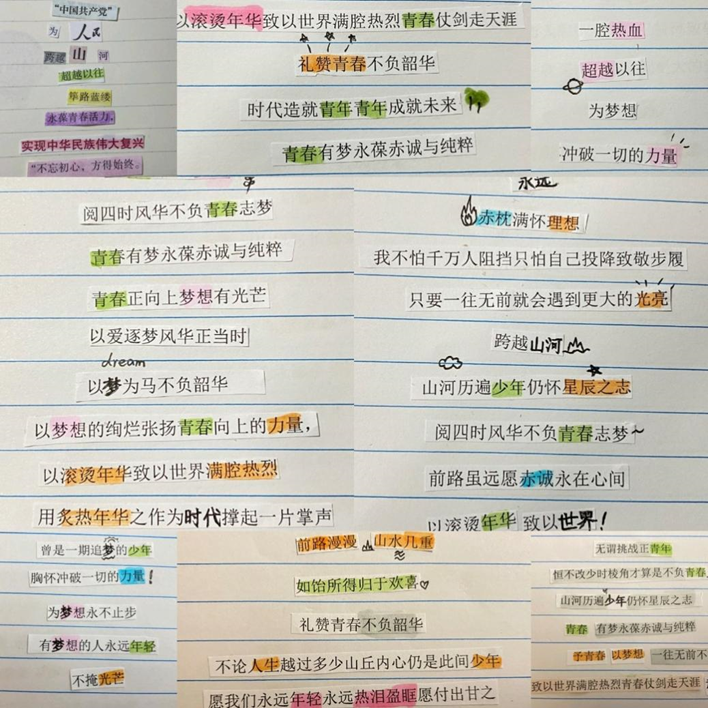 “中国共产党”
为 人民
跨越 山 河
超越以往
筚路蓝缕
永葆青春活力。
实现中华民族伟大复兴
“不忘初心，方得始终。
以滚烫年华致以世界满腔热烈青春仗剑走天涯
礼赞青春不负韶华
时代造就青年青年成就未来
青春有梦永葆赤诚与纯粹
一腔热血
超越以往
为梦想
冲破一切的力量
阅四时风华不负青春志梦
青春有梦永葆赤诚与纯粹
青春正向上梦想有光芒
以爱逐梦风华正当时
dream
以梦为马不负韶华
以梦想的绚烂张扬青春向上的力量，
以滚烫年华致以世界满腔热烈
用炙热年华之作为时代撑起一片掌声
永远
赤枕满怀理想
我不怕千万人阻挡只怕自己投降致敬步履
只要一往无前就会遇到更大的光亮
跨越山河
山河历遍少年仍怀星辰之志
阅四时风华不负青春志梦~
前路虽远愿赤诚永在心间
以滚烫年华 致以世界!
曾是一期追梦的少年
胸怀冲破一切的力量!
为梦想永不止步
有梦想的人永远年轻
不掩光芒
前路漫漫 山水几重
如饴所得归于欢喜
礼赞青春不负韶华
不论人生越过多少山丘内心仍是此间少年
愿我们永远年轻永远热泪盈眶愿付出甘之
无谓挑战正青年
恒不改少时棱角才算是不负青春
山河历遍少年仍怀星辰之志
青春 有梦永葆赤诚与纯粹
予青春 以梦想 一往无前不
致以世界满腔热烈青春仗剑走天涯